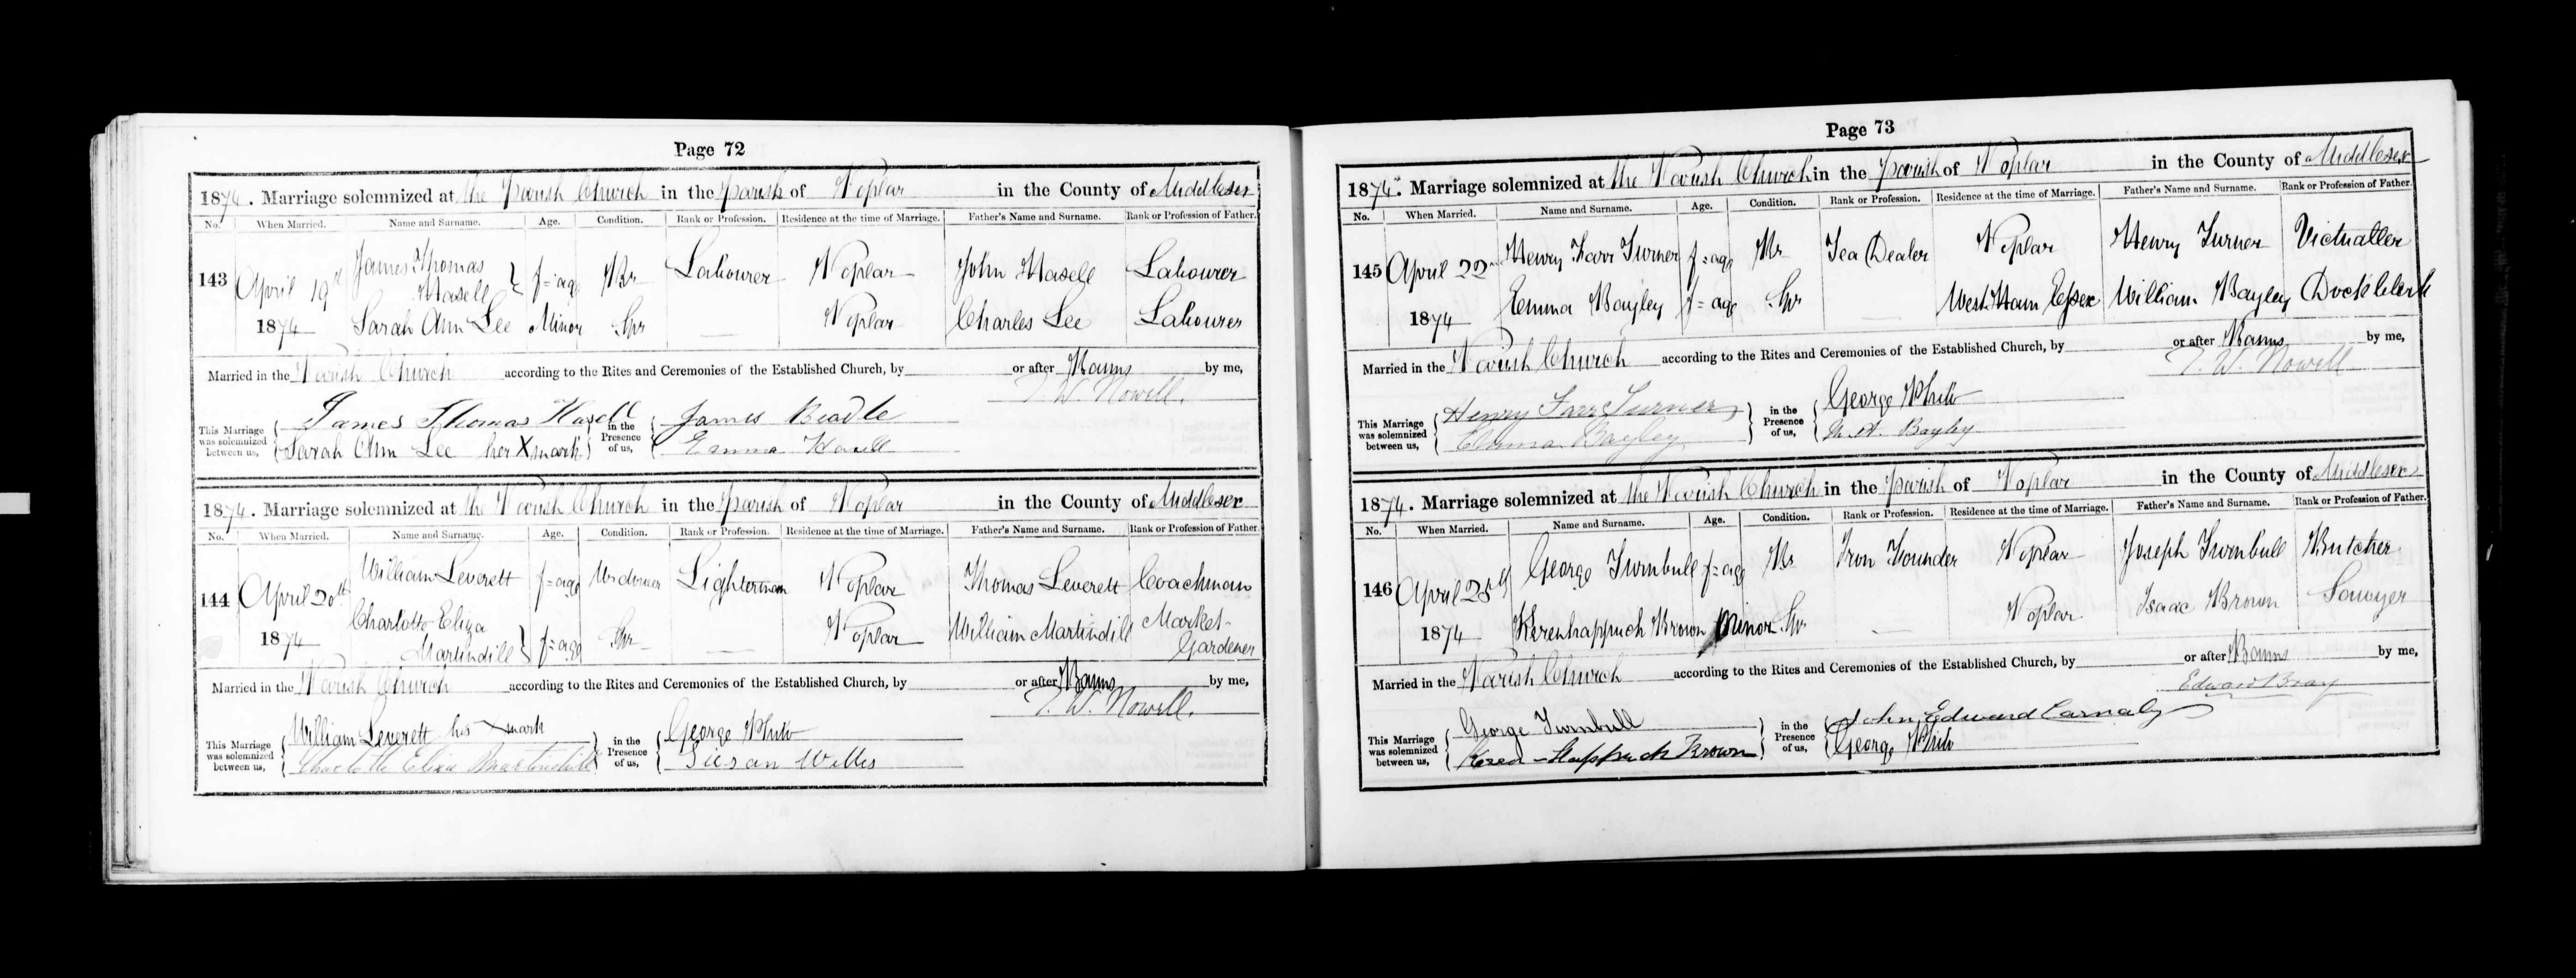 Page 72
1874. Marriage solemnized at the Parish Church in the parish of Poplar in the County of Middlesex
No. When Married. Name and Surname. Age. Condition. Rank or Profession. Residence at the time of Marriage. Father's Name and Surname. Rank or Profession of Father.
143 April 19th 1874 James Thomas Hasell f=age Br Labourer Poplar John Hasell Labourer
Sarah Ann Lee Minor Spr — Poplar Charles Lee Labourer
Married in the Parish Church according to the Rites and Ceremonies of the Established Church, by or after Banns by me,
T. W. Nowell.
This Marriage was solemnized between us, James Thomas Hasell in the Presence of us, James Beadle
Sarah Ann Lee her X mark Emma Hasell
1874. Marriage solemnized at the Parish Church in the parish of Poplar in the County of Middlesex
No. When Married. Name and Surname. Age. Condition. Rank or Profession. Residence at the time of Marriage. Father's Name and Surname. Rank or Profession of Father.
144 April 20th 1874 William Leverett f=age Widower Lighterman Poplar Thomas Leverett Coachman
Charlotte Eliza Martindill f=age Spr — Poplar William Martindill Market-Gardener
Married in the Parish Church according to the Rites and Ceremonies of the Established Church, by or after Banns by me,
T. W. Nowell.
This Marriage was solemnized between us, William Leverett his X mark in the Presence of us, George White
Charlotte Eliza Martindill Susan Willis
Page 73
1874. Marriage solemnized at the Parish Church in the parish of Poplar in the County of Middlesex
No. When Married. Name and Surname. Age. Condition. Rank or Profession. Residence at the time of Marriage. Father's Name and Surname. Rank or Profession of Father.
145 April 22nd 1874 Henry Farr Turner f=age Br Tea Dealer Poplar Henry Turner Victualler
Emma Bayley f=age Spr — West Ham Essex William Bayley Dock Clerk
Married in the Parish Church according to the Rites and Ceremonies of the Established Church, by or after Banns by me,
T. W. Nowell
This Marriage was solemnized between us, Henry Farr Turner in the Presence of us, George White
Emma Bayley M. A. Bayley
1874. Marriage solemnized at the Parish Church in the parish of Poplar in the County of Middlesex
No. When Married. Name and Surname. Age. Condition. Rank or Profession. Residence at the time of Marriage. Father's Name and Surname. Rank or Profession of Father.
146 April 25th 1874 George Turnbull f=age Br Iron Founder Poplar Joseph Turnbull Butcher
Kerenhappuch Brown Minor Spr — Poplar Isaac Brown Sawyer
Married in the Parish Church according to the Rites and Ceremonies of the Established Church, by or after Banns by me,
Edward Bray
This Marriage was solemnized between us, George Turnbull in the Presence of us, John Edward
Keren-Happuch Brown George White